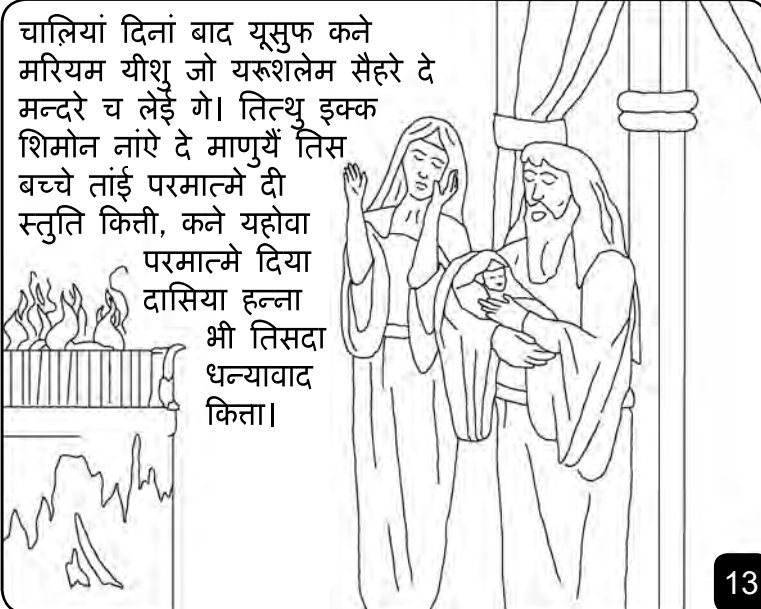 चालियां दिनां बाद यूसुफ कने
मरियम यीशु जो यरूशलेम सैहरे दे
मन्दरे च लेई गे। तित्थु इक्क
शिमोन नांऐ दे माणुयैं तिस
बच्चे तांई परमात्मे दी
स्तुति कित्ती, कने यहोवा
परमात्मे दिया
दासिया हन्ना
भी तिसदा
धन्यावाद
कित्ता।
13